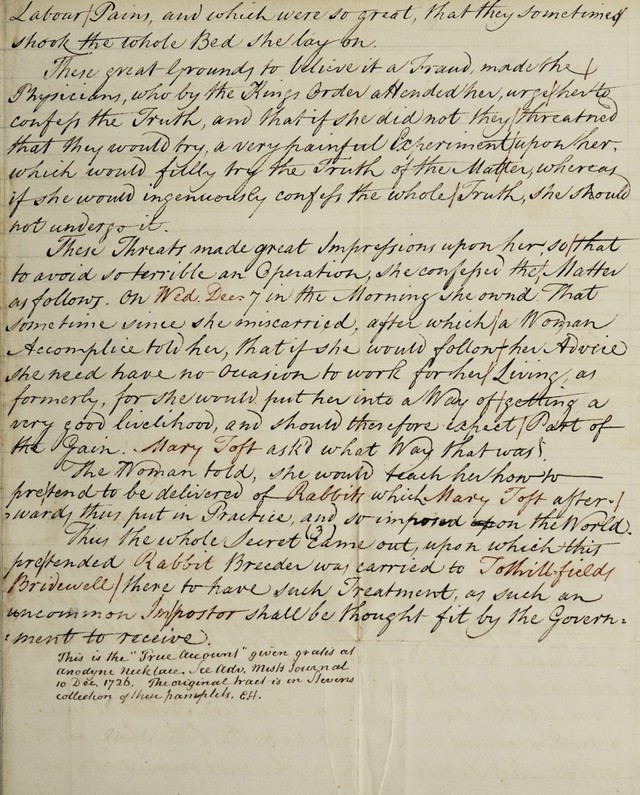 Labour/Pains, and which were so great, that they sometimes/
shook the whole Bed she lay on.
These great Grounds to believe it a Fraud, made the/
Physicians, who by the Kings Order attended her, urge/her to
confess the Truth, and that if she did not they/threatned
that they would try, a very painful Experiment/upon her,
which would fully try the Truth of the Matter, whereas
if she would ingenuously confess the whole/Truth, she should
not undergo it.
These Threats made great Impressions upon her, so/that
to avoid so terrible an Operation, she confessed the/Matter
as follows. On Wed. Dec. 7 in the Morning she ownd That
sometime since she miscarried, after which/a Woman
Accomplice told her, that if she would follow/her Advice
she need have no Occasion to work for her/Living, as
formerly, for she would put her into a Way of/getting a
very good livelihood, and should therefore expect/Part of
the Gain. Mary Toft ask'd what Way that was?
The Woman told, she would teach her how to
pre/tend to be delivered of Rabbits which Mary Toft after-/
-wards thus put in Practice, and so imposed upon the World.
(3)
Thus the whole Secret came out, upon which this
pre/tended Rabbit Breeder was carried to Tothill-fields
Bridewell/there to have such Treatment, as such an
uncommon Im/postor shall be thought fit by the Govern=
=ment to receive.
This is the "True Account" given gratis at
Anodyne Necklace. See Adv. Mists Journal
10 Dec. 1726. The original tract is in Stevens
collection of these pamphlets. EH.